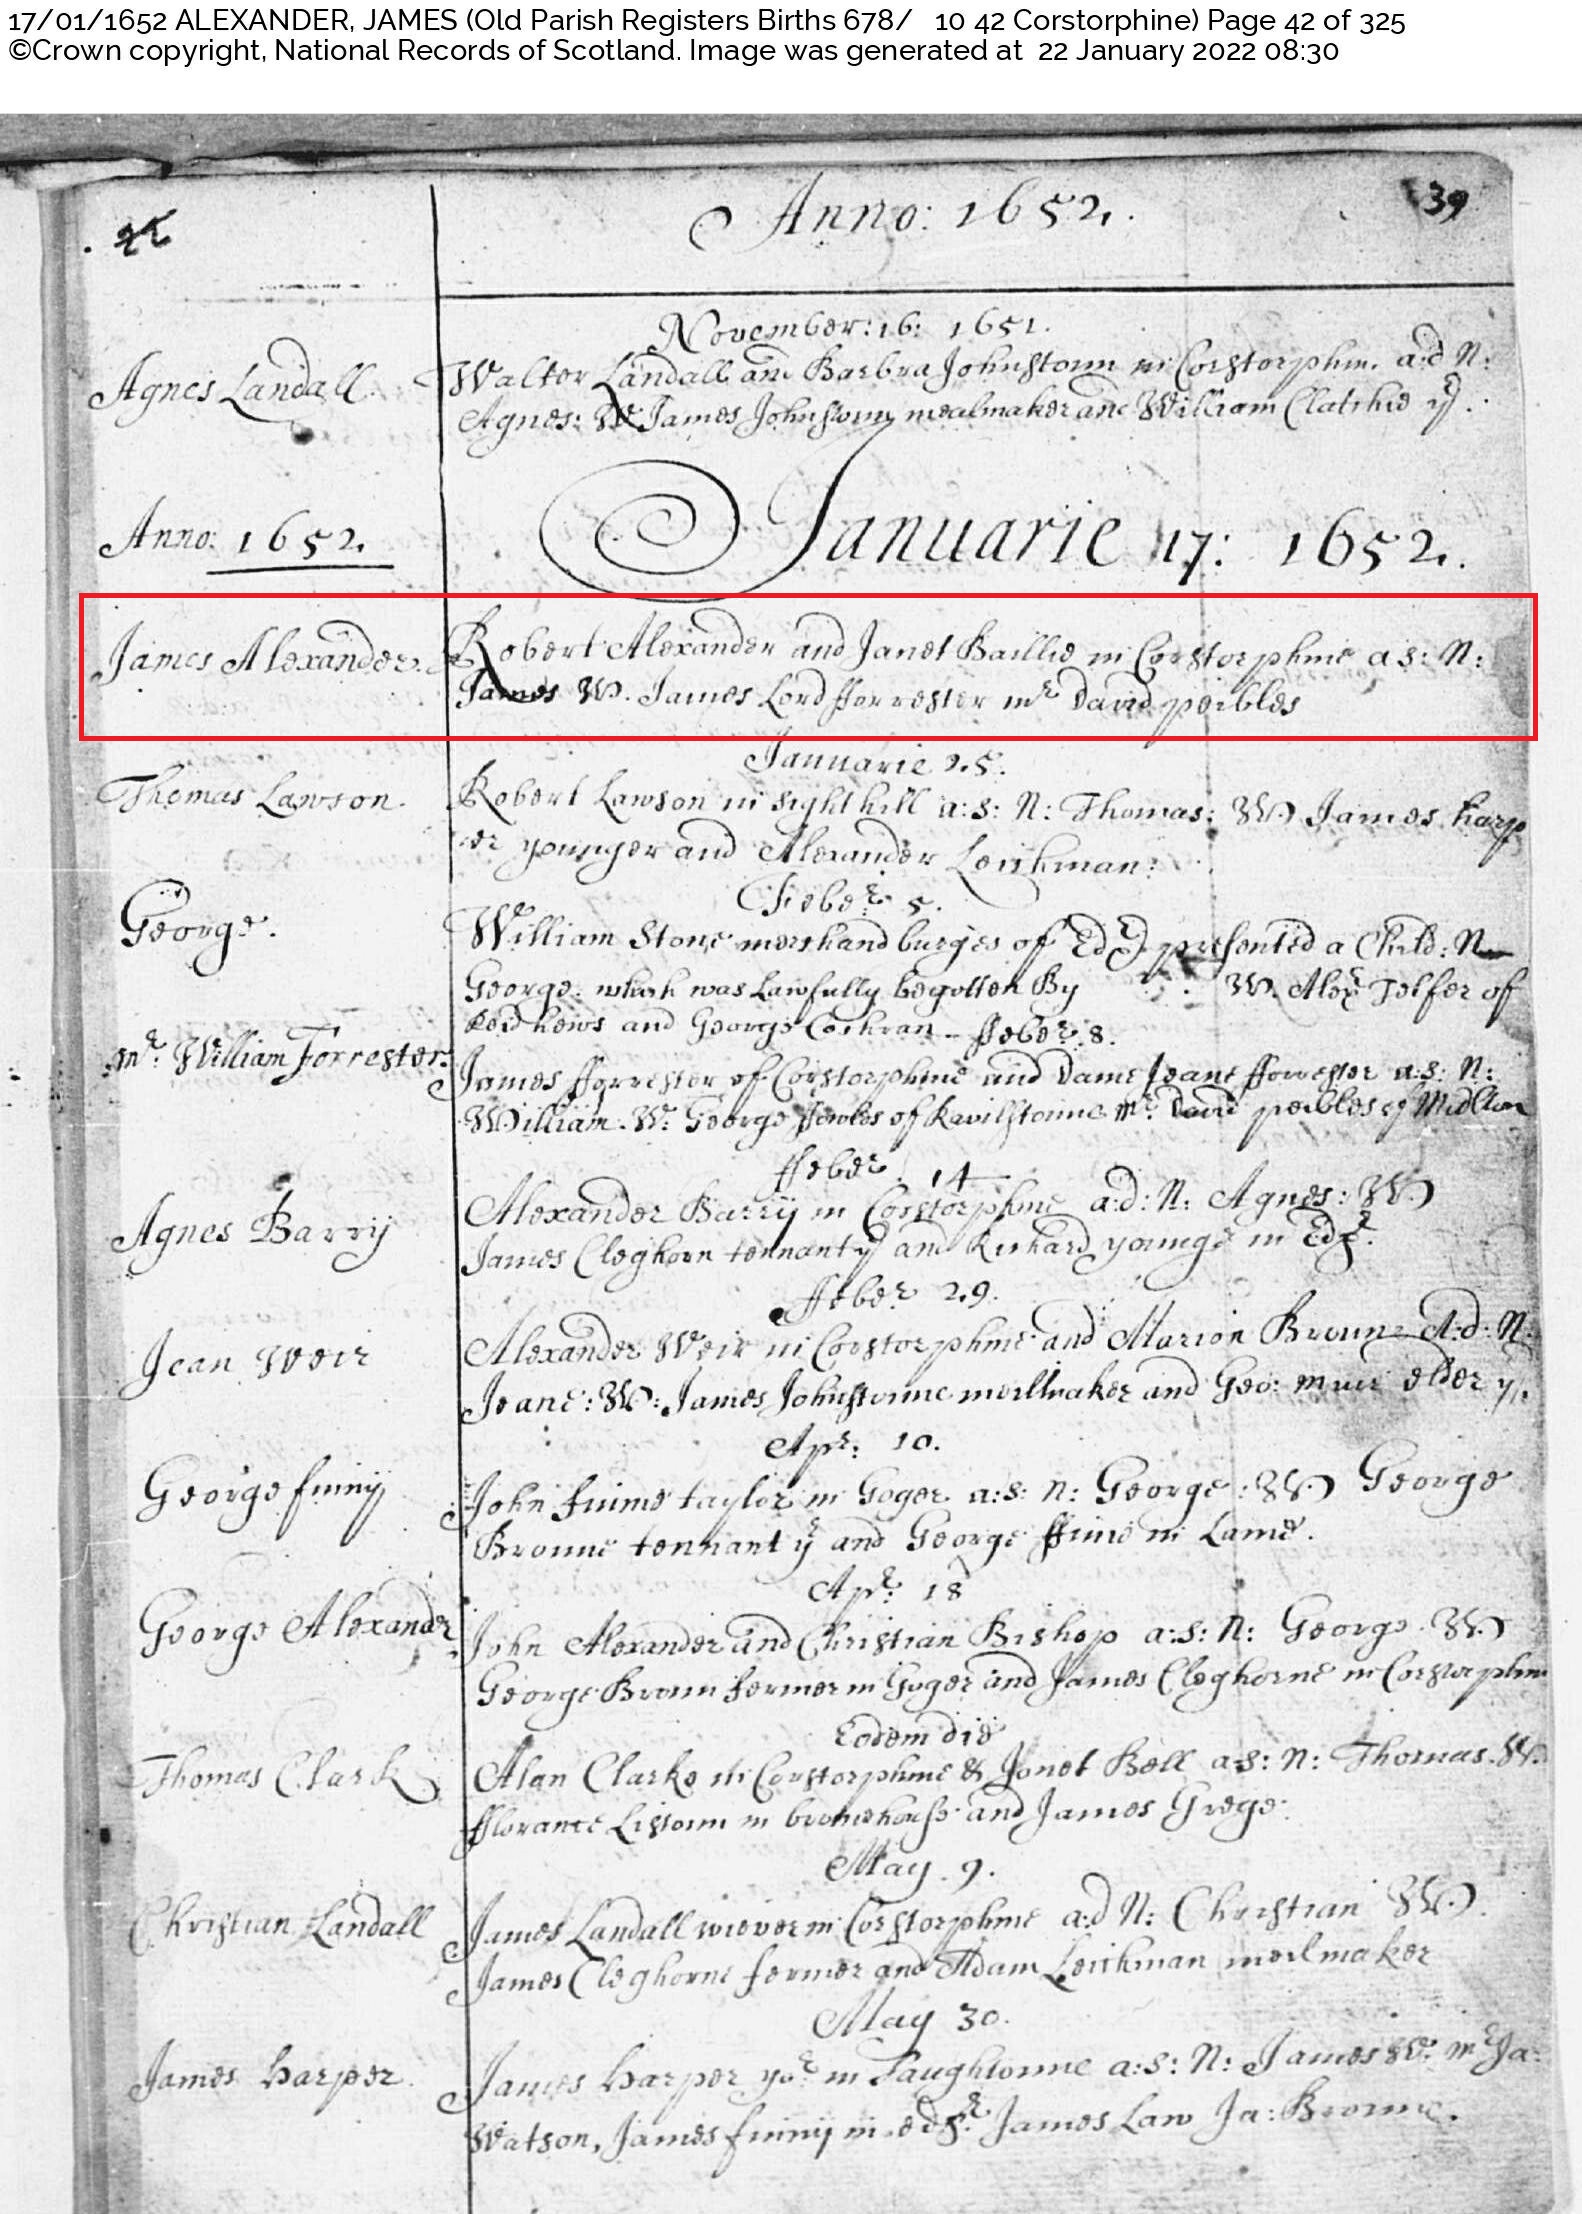 17/01/1652 ALEXANDER, JAMES (Old Parish Registers Births 678/ 10 42 Corstorphine) Page 42 of 325
©Crown copyright, National Records of Scotland. Image was generated at 22 January 2022 08:30
Anno: 1652.
39
November: 16: 1651.
Agnes Landall
Walter Landall and Barbra Johnstoun in Corstorphin. a:d N:
Agnes: W James Johnstoun mealmaker and William Clatchie
Anno: 1652.
Januarie 17: 1652.
James Alexander.
Robert Alexander and Janet Baillie in Corstorphine a s: N:
James W. James Lord fforrester mr David peibles
Januarie 25.
Thomas Lawson.
Robert Lawson in sighthill a:s: N: Thomas: W James harp
er younger and Alexander Leishman:
Feber 5.
George.
William Stone merchand burges of Edr presented a Child: N
George: which was Lawfully begotten By W. Alexr Telfer of
Reidhews and George Cochran - ffeber. 8.
mr. William Forrester.
James fforrester of Corstorphine and Dame Jeane fforrester a:s: N:
William. W: George ffowles of Ravilstoune. mr. David peibles of
ffeber. 14
Agnes Barry
Alexander Barry in Corstorphine a:d: N: Agnes: W
James Cleghorn tennant yr and Richard younge in Edr.
ffeber 29.
Jean Weir
Alexander Weir in Corstorphine and Marion Broune A:d: N:
Jeane: W: James Johnstoune meilmaker and Geo: muir elder yr.
Apr: 10.
George finny
John finnie taylor in Goger a:s: N: George: W George
Broune tennant yr and George ffinie in
Apr: 18
George Alexandr
John Alexander and Christian Bishop a:s: N: George. W
George Broun fermer in Goger and James Cleghorne in Corstorphin
Eodem die
Thomas Clark
Alan Clarke in Corstorphine & Jonet Bell a:s: N: Thomas. W.
fflorance Listoun in bromehouse and James Grege.
May. 9.
Christian Landall
James Landall wiever in Corstorphine a:d N: Christian W
James Cleghorne fermer and Adam Leishman meilmaker
May 30.
James harper.
James harper yor in Saughtoune a:s: N: James W: mr Ja:
Watson, James finny in edr. James Law Ja: Broune.